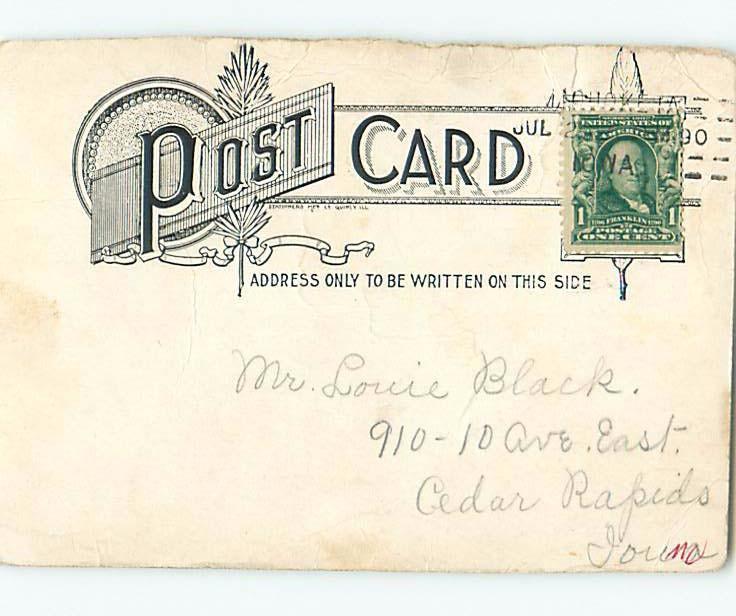 POST CARD
JUL
90
SERIES 1902
UNITED STATES OF
AMERICA
1 1706 FRANKLIN 1790 1
POSTAGE
ONE CENT
STATIONERS MFG. CO. QUINCY, ILL.
ADDRESS ONLY TO BE WRITTEN ON THIS SIDE
Mr. Louie Black.
910-10 Ave. East.
Cedar Rapids
Iowa